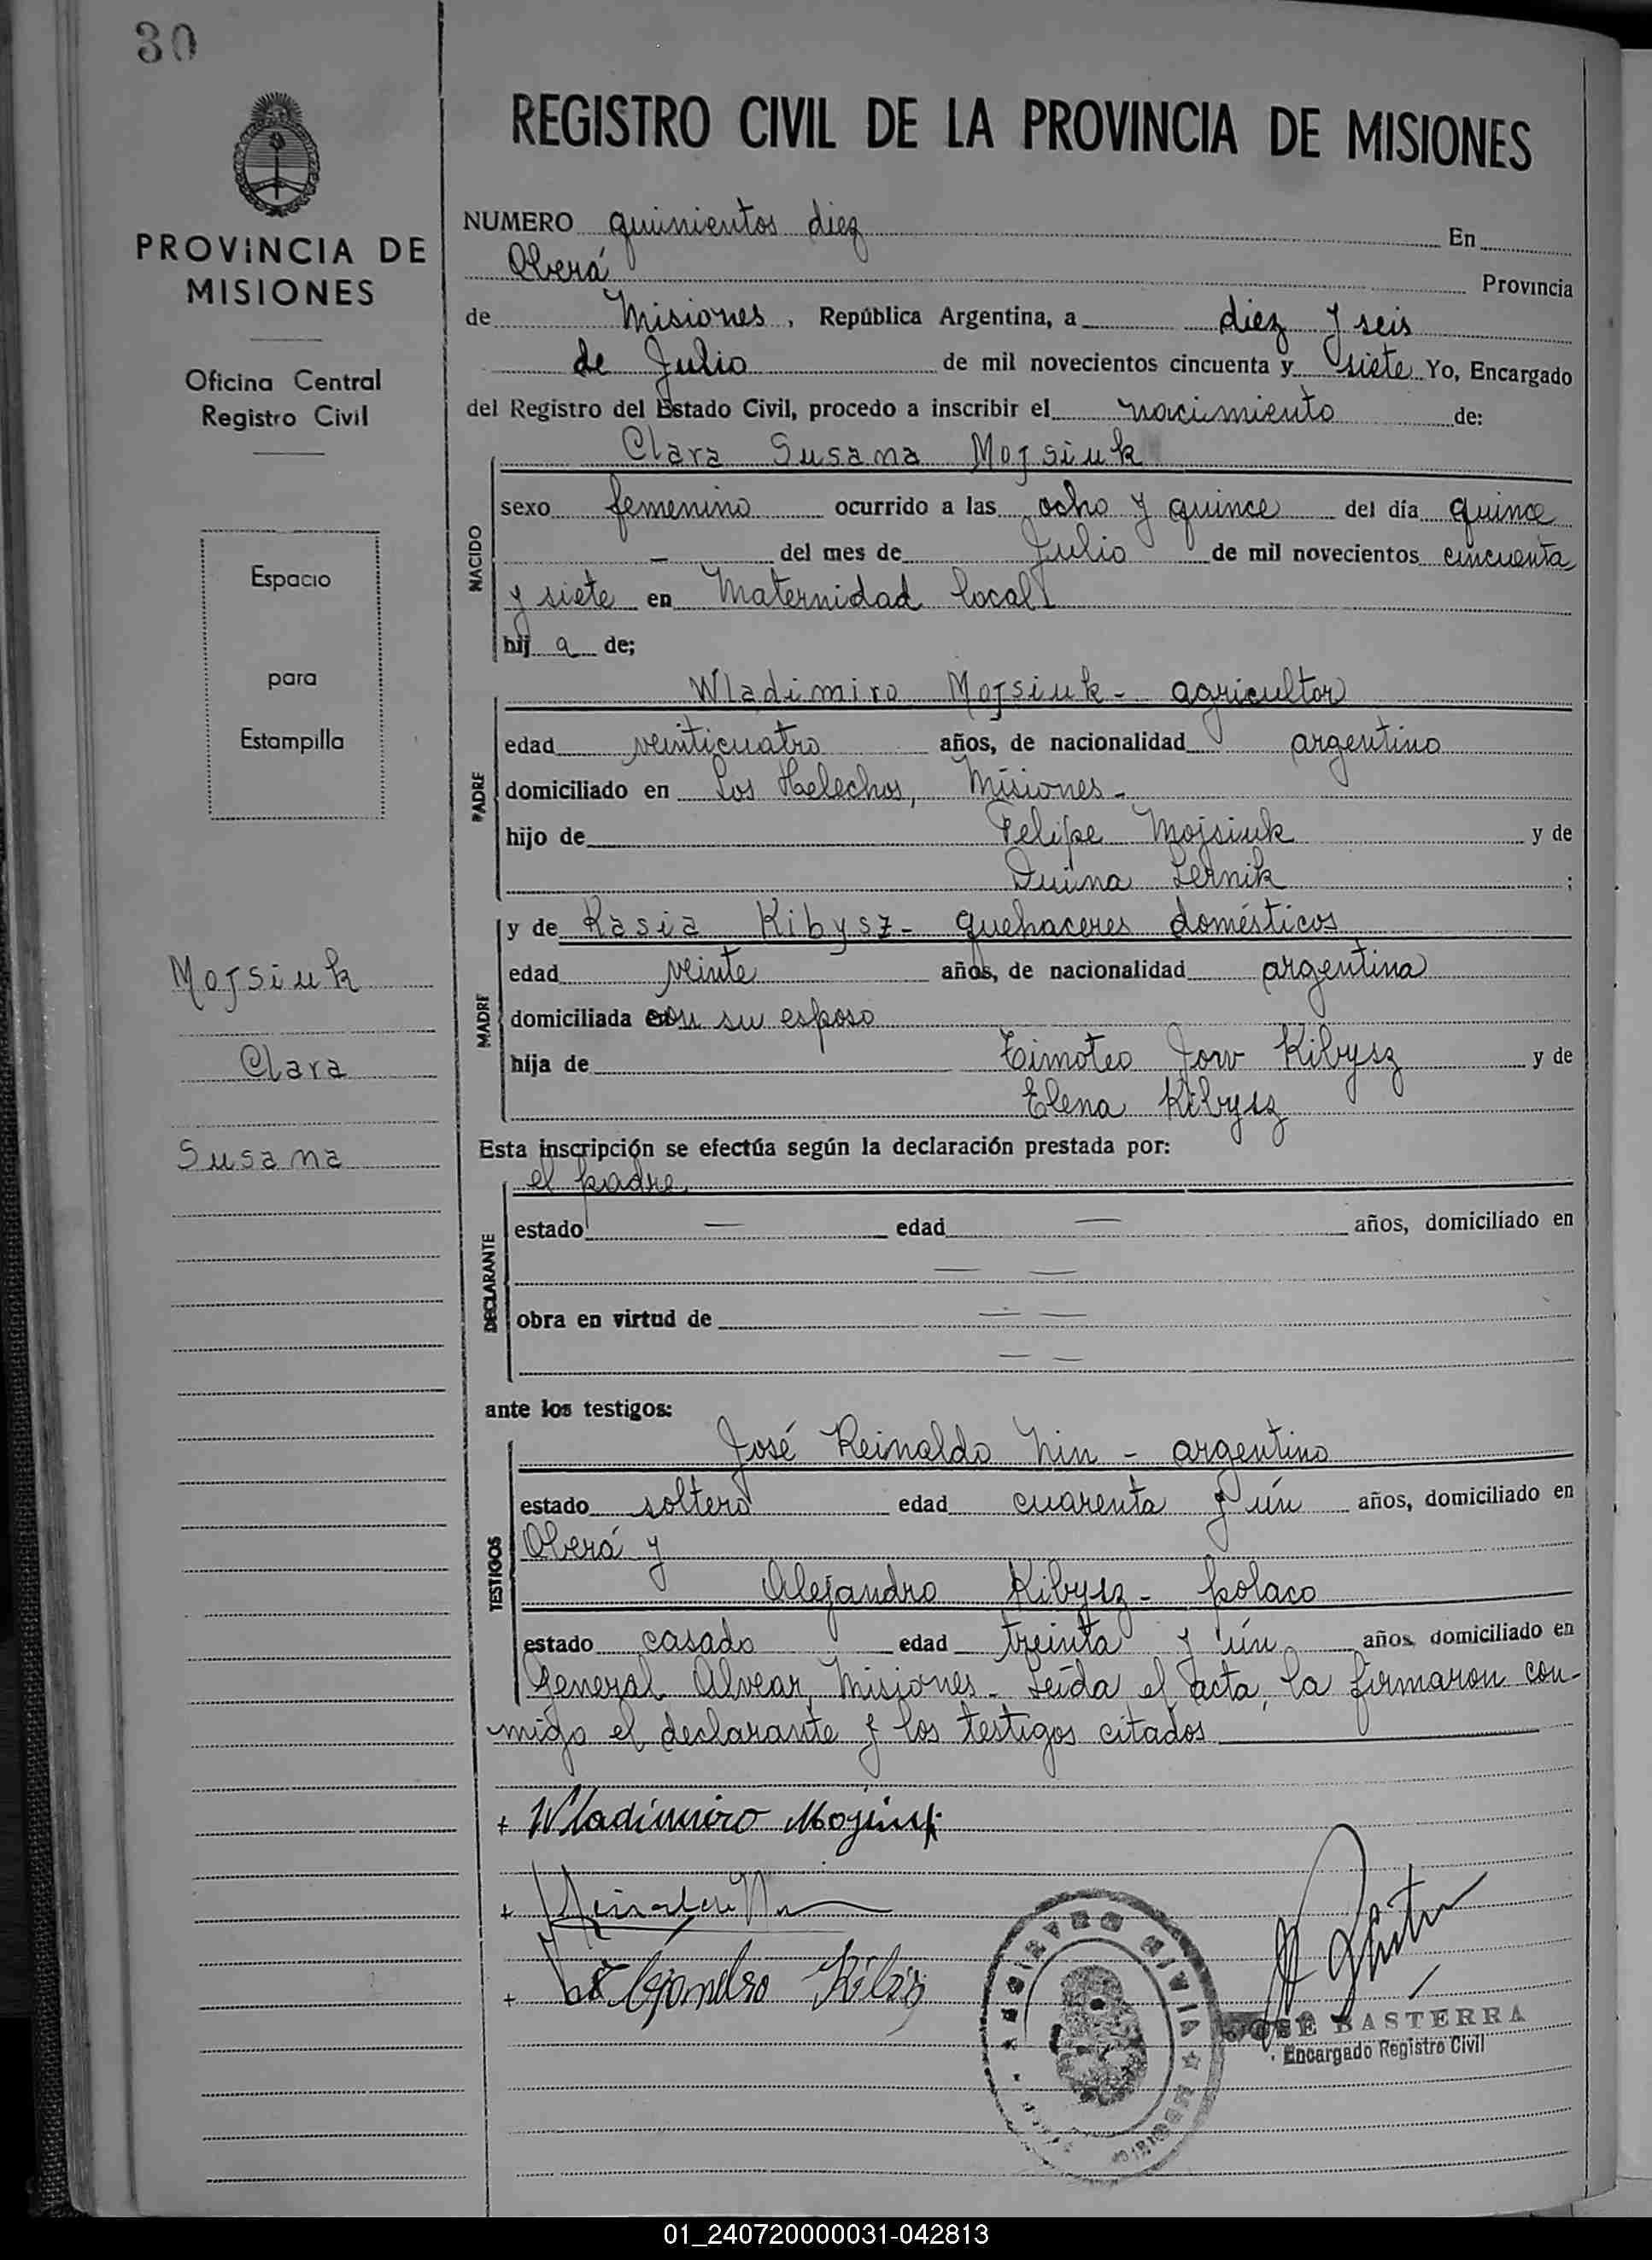 30
PROVINCIA DE
MISIONES
Oficina Central
Registro Civil
Espacio
para
Estampilla
Mojsiuk
Clara
Susana
REGISTRO CIVIL DE LA PROVINCIA DE MISIONES
NUMERO quinientos diez En
Oberá Provincia
de Misiones, República Argentina, a diez y seis
de Julio de mil novecientos cincuenta y siete Yo, Encargado
del Registro del Estado Civil, procedo a inscribir el nacimiento de:
Clara Susana Mojsiuk
NACIDO
sexo femenino ocurrido a las ocho y quince del día quince
— del mes de Julio de mil novecientos cincuenta
y siete en Maternidad local
hij a de;
Wladimiro Mojsiuk - agricultor
PADRE
edad veinticuatro años, de nacionalidad argentino
domiciliado en Los Helechos, Misiones -
hijo de Felipe Mojsiuk y de
Lernik ;
y de Kasia Kibysz - quehaceres domésticos
MADRE
edad veinte años, de nacionalidad argentina
domiciliada con su esposo
hija de Timoteo Jow Kibysz y de
Elena Kibysz
Esta inscripción se efectúa según la declaración prestada por:
el padre
DECLARANTE
estado — edad — años, domiciliado en
— —
obra en virtud de — —
— —
ante los testigos:
José Reinaldo Nin - argentino
TESTIGOS
estado soltero edad cuarenta y ún años, domiciliado en
Oberá y
Alejandro Kibysz - polaco
estado casado edad treinta y ún años domiciliado en
General Alvear, Misiones - Leída el acta, la firmaron con-
migo el declarante y los testigos citados
+ Wladimiro
+
+ Alejandro
JOSE BASTERRA
Encargado Registro Civil
01_240720000031-042813